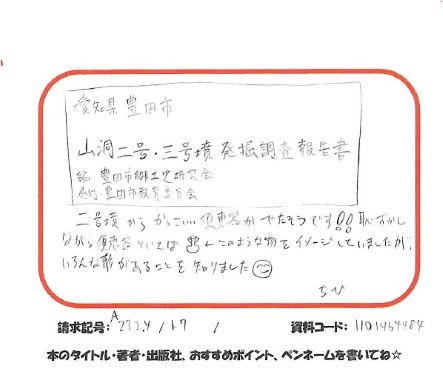 愛知県豊田市
山洞二号・三号墳発掘調査報告書
編・豊田市郷土史研究会
発行・豊田市教育委員会
二号墳からかっこいい須恵器がでたそうです!! 恥ずかし
ながら須恵器といえば ←このような物をイメージしていましたが、
いろんな形があることを知りました
ちび
請求記号: A232.4 / 19 / 資料コード: 1101464484
本のタイトル・著者・出版社、おすすめポイント、ペンネームを書いてね☆